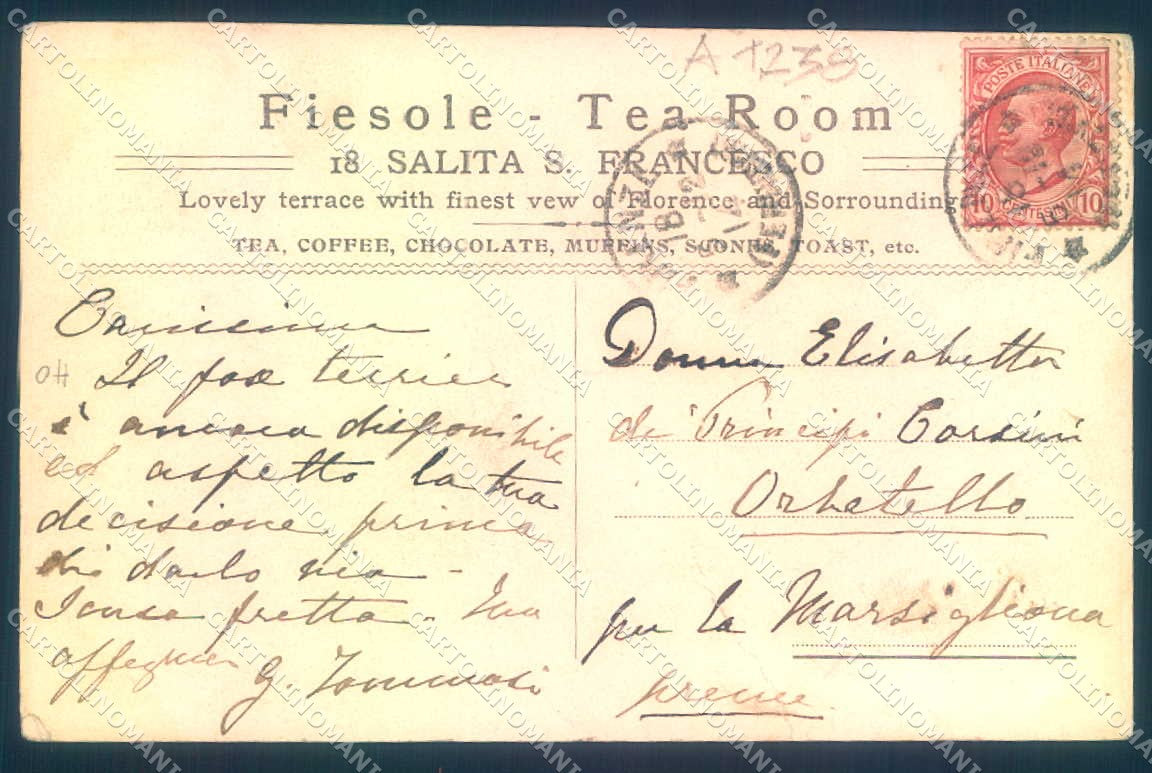 A 1238
Fiesole - Tea Room
18 SALITA S. FRANCESCO
Lovely terrace with finest vew of Florence and Sorrounding
TEA, COFFEE, CHOCOLATE, MUFFINS, SCONES, TOAST, etc.
POSTE ITALIANE
10 CENTESIMI 10
FIRENZE
Carissima
Il fox terrier
è ancora disponibile
ed aspetto la tua
decisione prima
di darlo via -
Scusa fretta - tua
G. Tommasi
Donna Elisabetta
dei Principi Corsini
Orbetello
per la Marsigliana
CARTOLINOMANIA